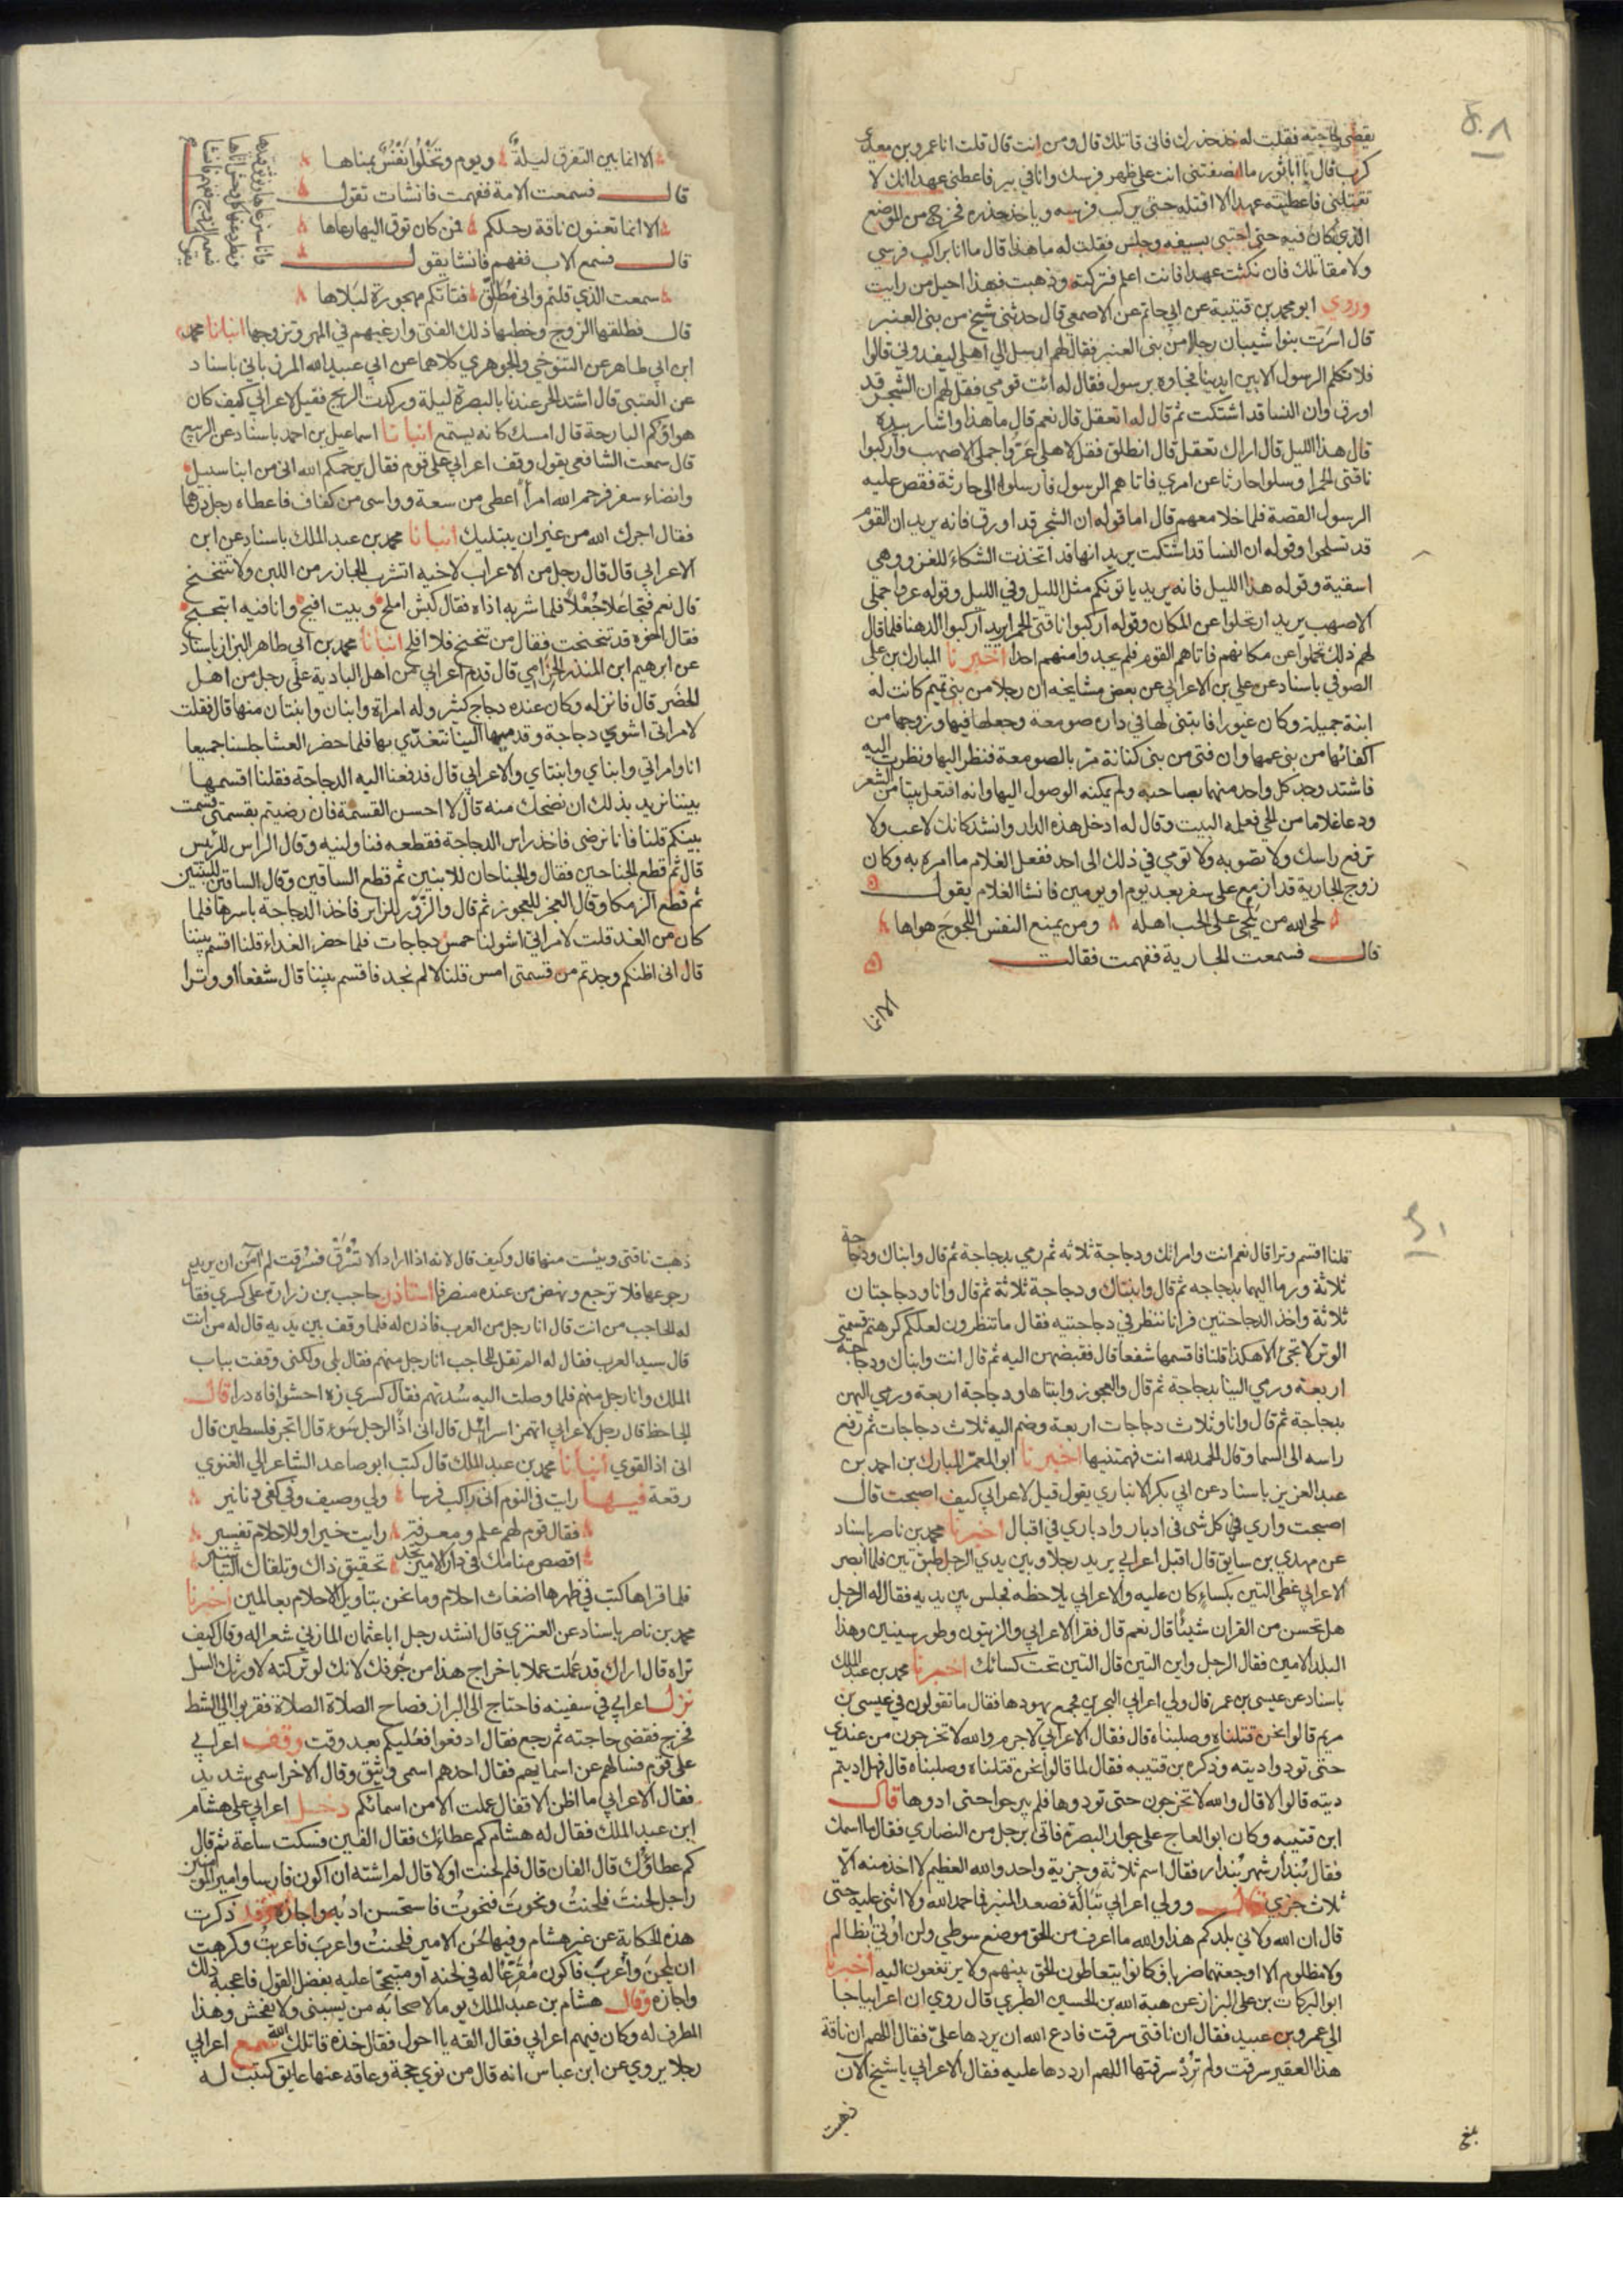 يقضي حاجته فقلت له خذ حذرك فاني قاتلك قال ومن انت قال قلت انا عمرو بن معدي
كرب قال يا أبا ثور ما انصفتني انت على ظهر فرسك وانا في بير فاعطني عهدا انك لا
تقتلني فاعطيته عهدا الا اقتله حتى يركب فرسه وياخذ حذره فخرج من الموضع
الذي كان فيه حتى احتبى بسيفه وجلس فقلت له ما هذا قال ما انا براكب فرسي
ولا مقاتلك فان نكثت عهدا فانت اعلم فتركته وذهبت فهذا احيل من رايت
وروي ابو محمد بن قتيبة عن ابي حاتم عن الاصمعي قال حدثني شيخ من بني العنبر
قال اسرت بنوا شيبان رجلا من بني العنبر فقال لهم ارسل الي اهلي ليفدوني قالوا
فلا تكلم الرسول الا بين ايدينا فجاوه برسول فقال له ائت قومي فقل لهم ان الشجر قد
اورق وان النسا قد اشتكت ثم قال له اتعقل قال نعم قال ما هذا واشار بيده
قال هذا الليل قال اراك تعقل قال انطلق فقل لاهلي عروا جملي الاصهب واركبوا
ناقتي الحمرا وسلوا حارثا عن امري فاتاهم الرسول فارسلوا الى حارثة فقص عليه
الرسول القصة فلما خلا معهم قال اما قوله ان الشجر قد اورق فانه يريد ان القوم
قد تسلحوا وقوله ان النسا قد اشتكت يريد انها قد اتخذت الشكاء للغزو وهي
اسقية وقوله هذا الليل فانه يريد ياتونكم مثل الليل وفي الليل وقوله عروا جملي
الاصهب يريد ارتحلوا عن المكان وقوله اركبوا ناقتي الحمرا يريد اركبوا الدهنا فلما قال
لهم ذلك تحملوا عن مكانهم فاتاهم القوم فلم يجدوا منهم احدا اخبرنا المبارك بن علي
الصوفي باسناد عن علي بن الاعرابي عن بعض مشايخه ان رجلا من بني تميم كانت له
ابنة جميلة وكان غيورا فابتنى لها في داره صومعة وجعلها فيها وزوجها من
اكفائها من بني عمها وان فتى من بني كنانة مر بالصومعة فنظر اليها ونظرت اليه
فاشتد وجد كل واحد منهما بصاحبه ولم يمكنه الوصول اليها وانه افتعل بيتا من الشعر
ودعا غلاما من الحي فعلمه البيت وقال له ادخل هذه الدار وانشد كانك لاعب ولا
ترفع راسك ولا تصوبه ولا تومي في ذلك الى احد ففعل الغلام ما امره به وكان
زوج الجارية قد ازمع على سفر بعد يوم او يومين فانشا الغلام يقول
لحى الله من يلحى على الحب اهله ومن يمنع النفس اللجوج هواها
قال فسمعت الجارية ففهمت فقالت
الا انما
الا انما بين التفرق ليلة ويوم وتخلوا نفس بمناها
قال فسمعت الامة ففهمت فانشات تقول
الا انما تعنون ناقة رحلكم فمن كان توق اليها رعاها
قال فسمع الاب ففهم فانشا يقول
سمعت الذي قلتم واني مطلق فتاتكم مهجورة لبلاها
قال فطلقها الزوج وخطبها ذلك الفتى وارغبهم في المهر وتزوجها انبانا محمد
ابن ابي طاهر عن التنوخي والجوهري كلاهما عن ابي عبيد الله المرزباني باسناد
عن العتبي قال اشتد الحر عندنا بالبصرة ليلة وركدت الريح فقيل لاعرابي كيف كان
هواؤكم البارحة قال امسك كانه يستمع انبانا اسماعيل بن احمد باسناد عن الربيع
قال سمعت الشافعي يقول وقف اعرابي على قوم فقال يرحمكم الله اني من ابنا سبيل
وانضاء سفر فرحم الله امرأ اعطى من سعة وواسى من كفاف فاعطاه رجل درهما
فقال اجرك الله من غير ان يبتليك انبانا محمد بن عبد الملك باسناد عن ابن
الاعرابي قال قال رجل من الاعراب لاخيه اتشرب الخازر من اللبن ولا تتنحنح
قال نعم فتجاعلا جعلا فلما شربه اذاه فقال كبش املح وبيت افيح وانا فيه ابتحبح
فقال اخوه قد تنحنحت فقال من تنحنح فلا افلح انبانا محمد بن ابي طاهر البزاز باسناد
عن ابرهيم ابن المنذر الحزامي قال قدم اعرابي من اهل البادية على رجل من اهل
الحضر قال فانزله وكان عنده دجاج كثير وله امراة وابنان وابنتان منها قال فقلت
لامراتي اشوي دجاجة وقدميها الينا نتغدي بها فلما حضر العشا جلسنا جميعا
انا وامراتي وابناي وابنتاي والاعرابي قال فدفعنا اليه الدجاجة فقلنا اقسمها
بيننا نريد بذلك ان نضحك منه قال لا احسن القسمة فان رضيتم بقسمتي قسمت
بينكم قلنا فانا نرضى فاخذ راس الدجاجة فقطعه فناولنيه وقال الراس للرئيس
قال ثم قطع الجناحين فقال والجناحان للابنين ثم قطع الساقين وقال الساقين للبنتين
ثم قطع الزمكا وقال العجز للعجوز ثم قال والزور للزاير فاخذ الدجاجة باسرها فلما
كان من الغد قلت لامراتي اشوي لنا خمس دجاجات فلما حضر الغداء قلنا اقسم بيننا
قال اني اظنكم وجدتم من قسمتي امس قلنا لا لم نجد فاقسم بيننا قال شفعا او وترا
قلنا اقسم وترا قال نعم انت وامراتك ودجاجة ثلاثة ثم رمى بدجاجة ثم قال وابناك ودجاجة
ثلاثة ورما اليهما بدجاجه ثم قال وابنتاك ودجاجة ثلاثة ثم قال وانا ودجاجتان
ثلاثة واخذ الدجاجتين فرانا ننظر في دجاجتيه فقال ما تنظرون لعلكم كرهتم قسمتي
الوتر لا تجئ الا هكذا قلنا فاقسمها شفعا قال فقبضهن اليه ثم قال انت وابناك ودجاجة
اربعة ورمي الينا بدجاجة ثم قال والعجوز وابنتاها ودجاجة اربعة ورمي اليهن
بدجاجة ثم قال وانا وثلاث دجاجات اربعة وضم اليه ثلاث دجاجات ثم رفع
راسه الى السما وقال الحمد لله انت فهمتنيها اخبرنا ابو المعمر المبارك بن احمد بن
عبد العزيز باسناد عن ابي بكر الانباري يقول قيل لاعرابي كيف اصبحت قال
اصبحت واري في كل شى في ادبار وادباري في اقبال اخبرنا محمد بن ناصر باسناد
عن مهدي بن سابق قال اقبل اعرابي يريد رجلا وبين يدي الرجل طبق تين فلما ابصر
الاعرابي غطى التين بكساء كان عليه والاعرابي يلاحظه فجلس بين يديه فقال له الرجل
هل تحسن من القران شيئا قال نعم قال فقرا الاعرابي والزيتون وطور سينين وهذا
البلد الامين فقال الرجل واين التين قال التين تحت كسائك اخبرنا محمد بن عبد الملك
باسناد عن عيسى بن عمر قال ولي اعرابي البحرين فجمع يهودها فقال ما تقولون في عيسى بن
مريم قالوا نحن قتلناه وصلبناه قال فقال الاعرابي لا جرم والله لا تخرجون من عندي
حتى تودوا ديته وذكره بن قتيبه فقال لما قالوا نحن قتلناه وصلبناه قال فهل اديتم
ديته قالوا لا قال والله لا تخرجون حتى تودوها فلم يبرحوا حتى ادوها قال
ابن قتيبه وكان ابو العاج على جوار البصرة فاتي برجل من النصاري فقال ما اسمك
فقال بندار شهر بندار فقال اسم ثلاثة وجزية واحد والله العظيم لا اخذ منه الا
ثلاث جزي قال وولي اعرابي تبالة فصعد المنبر فما حمد الله ولا اثنى عليه حتى
قال ان الله ولاني بلدكم هذا والله ما اعرف من الحق موضع سوطي ولن اوتي بظالم
ولا مظلوم الا اوجعتهما ضربا فكانوا يتعاطون الحق بينهم ولا يرتفعون اليه اخبرنا
ابو البركات بن علي البزاز عن هبة الله بن الحسين الطبري قال روي ان اعرابيا جا
الي عمرو بن عبيد فقال ان ناقتي سرقت فادع الله ان يردها علي فقال اللهم ان ناقة
هذا الفقير سرقت ولم ترد سرقتها اللهم ارددها عليه فقال الاعرابي يا شيخ الان
ذهبت
بلغ
ذهبت ناقتي ويئست منها قال وكيف قال لانه اذا اراد الا تسرق فسرقت لم آمن ان يريد
رجوعها فلا ترجع ونهض من عنده منصرفا استاذن حاجب بن زرارة على كسري فقا
له الحاجب من انت قال انا رجل من العرب فاذن له فلما وقف بين يديه قال له من انت
قال سيد العرب فقال له الم تقل للحاجب انا رجل منهم فقال بلى ولكني وقفت بباب
الملك وانا رجل منهم فلما وصلت اليه سدتهم فقال كسري زه احشوا فاه درا قال
الجاحظ قال رجل لاعرابي اتهمز اسرائيل قال اني اذا لرجل سوء قال اتجر فلسطين قال
اني اذا لقوي انبانا محمد بن عبد الملك قال كتب ابو صاعد الشاعر الي الغنوي
رقعة فيها رايت في النوم اني راكب فرسا ولي وصيف وفي كفي دنانير
فقال قوم لهم علم ومعرفة رايت خيرا وللاحلام تفسير
اقصص منامك في دار الامير تجد تحقيق ذاك وتلقاك التباشير
فلما قراها كتب في ظهرها اضغاث احلام وما نحن بتاويل الاحلام بعالمين اخبرنا
محمد بن ناصر باسناد عن العنزي قال انشد رجل ابا عثمان المازني شعرا له وقال كيف
تراه قال اراك قد عملت عملا باخراج هذا من جوفك لانك لو تركته لاورثك السل
نزل اعرابي في سفينه فاحتاج الى البراز فصاح الصلاة الصلاة فقربوا الي الشط
فخرج فقضى حاجته ثم رجع فقال ادفعوا فعليكم بعد وقت وقف اعرابي
على قوم فسالهم عن اسمائهم فقال احدهم اسمي وثيق وقال الاخر اسمي شديد
فقال الاعرابي ما اظن الاقفال عملت الا من اسمائكم دخل اعرابي على هشام
ابن عبد الملك فقال له هشام كم عطاءك فقال الفين فسكت ساعة ثم قال
كم عطاؤك قال الفان قال فلم لحنت اولا قال لم اشته ان اكون فارسا وامير المومنين
راجل لحنت فلحنت ونحوت فنحوت فاستحسن ادبه واجازه وقد ذكرت
هذه الحكاية عن غير هشام وفيها لحن الامير فلحنت واعرب فاعربت وكرهت
ان يلحن وأعرب فاكون مقرعا له في لحنه او متبجحا عليه بفضل القول فاعجبه ذلك
واجازه وقال هشام بن عبد الملك يوما لاصحابه من يسبني ولا يفحش وهذا
المطرف له وكان فيهم اعرابي فقال القه يا احول فقال خذه قاتلك الله سمع اعرابي
رجلا يروي عن ابن عباس انه قال من نوي حجة وعاقه عنها عايق كتبت له